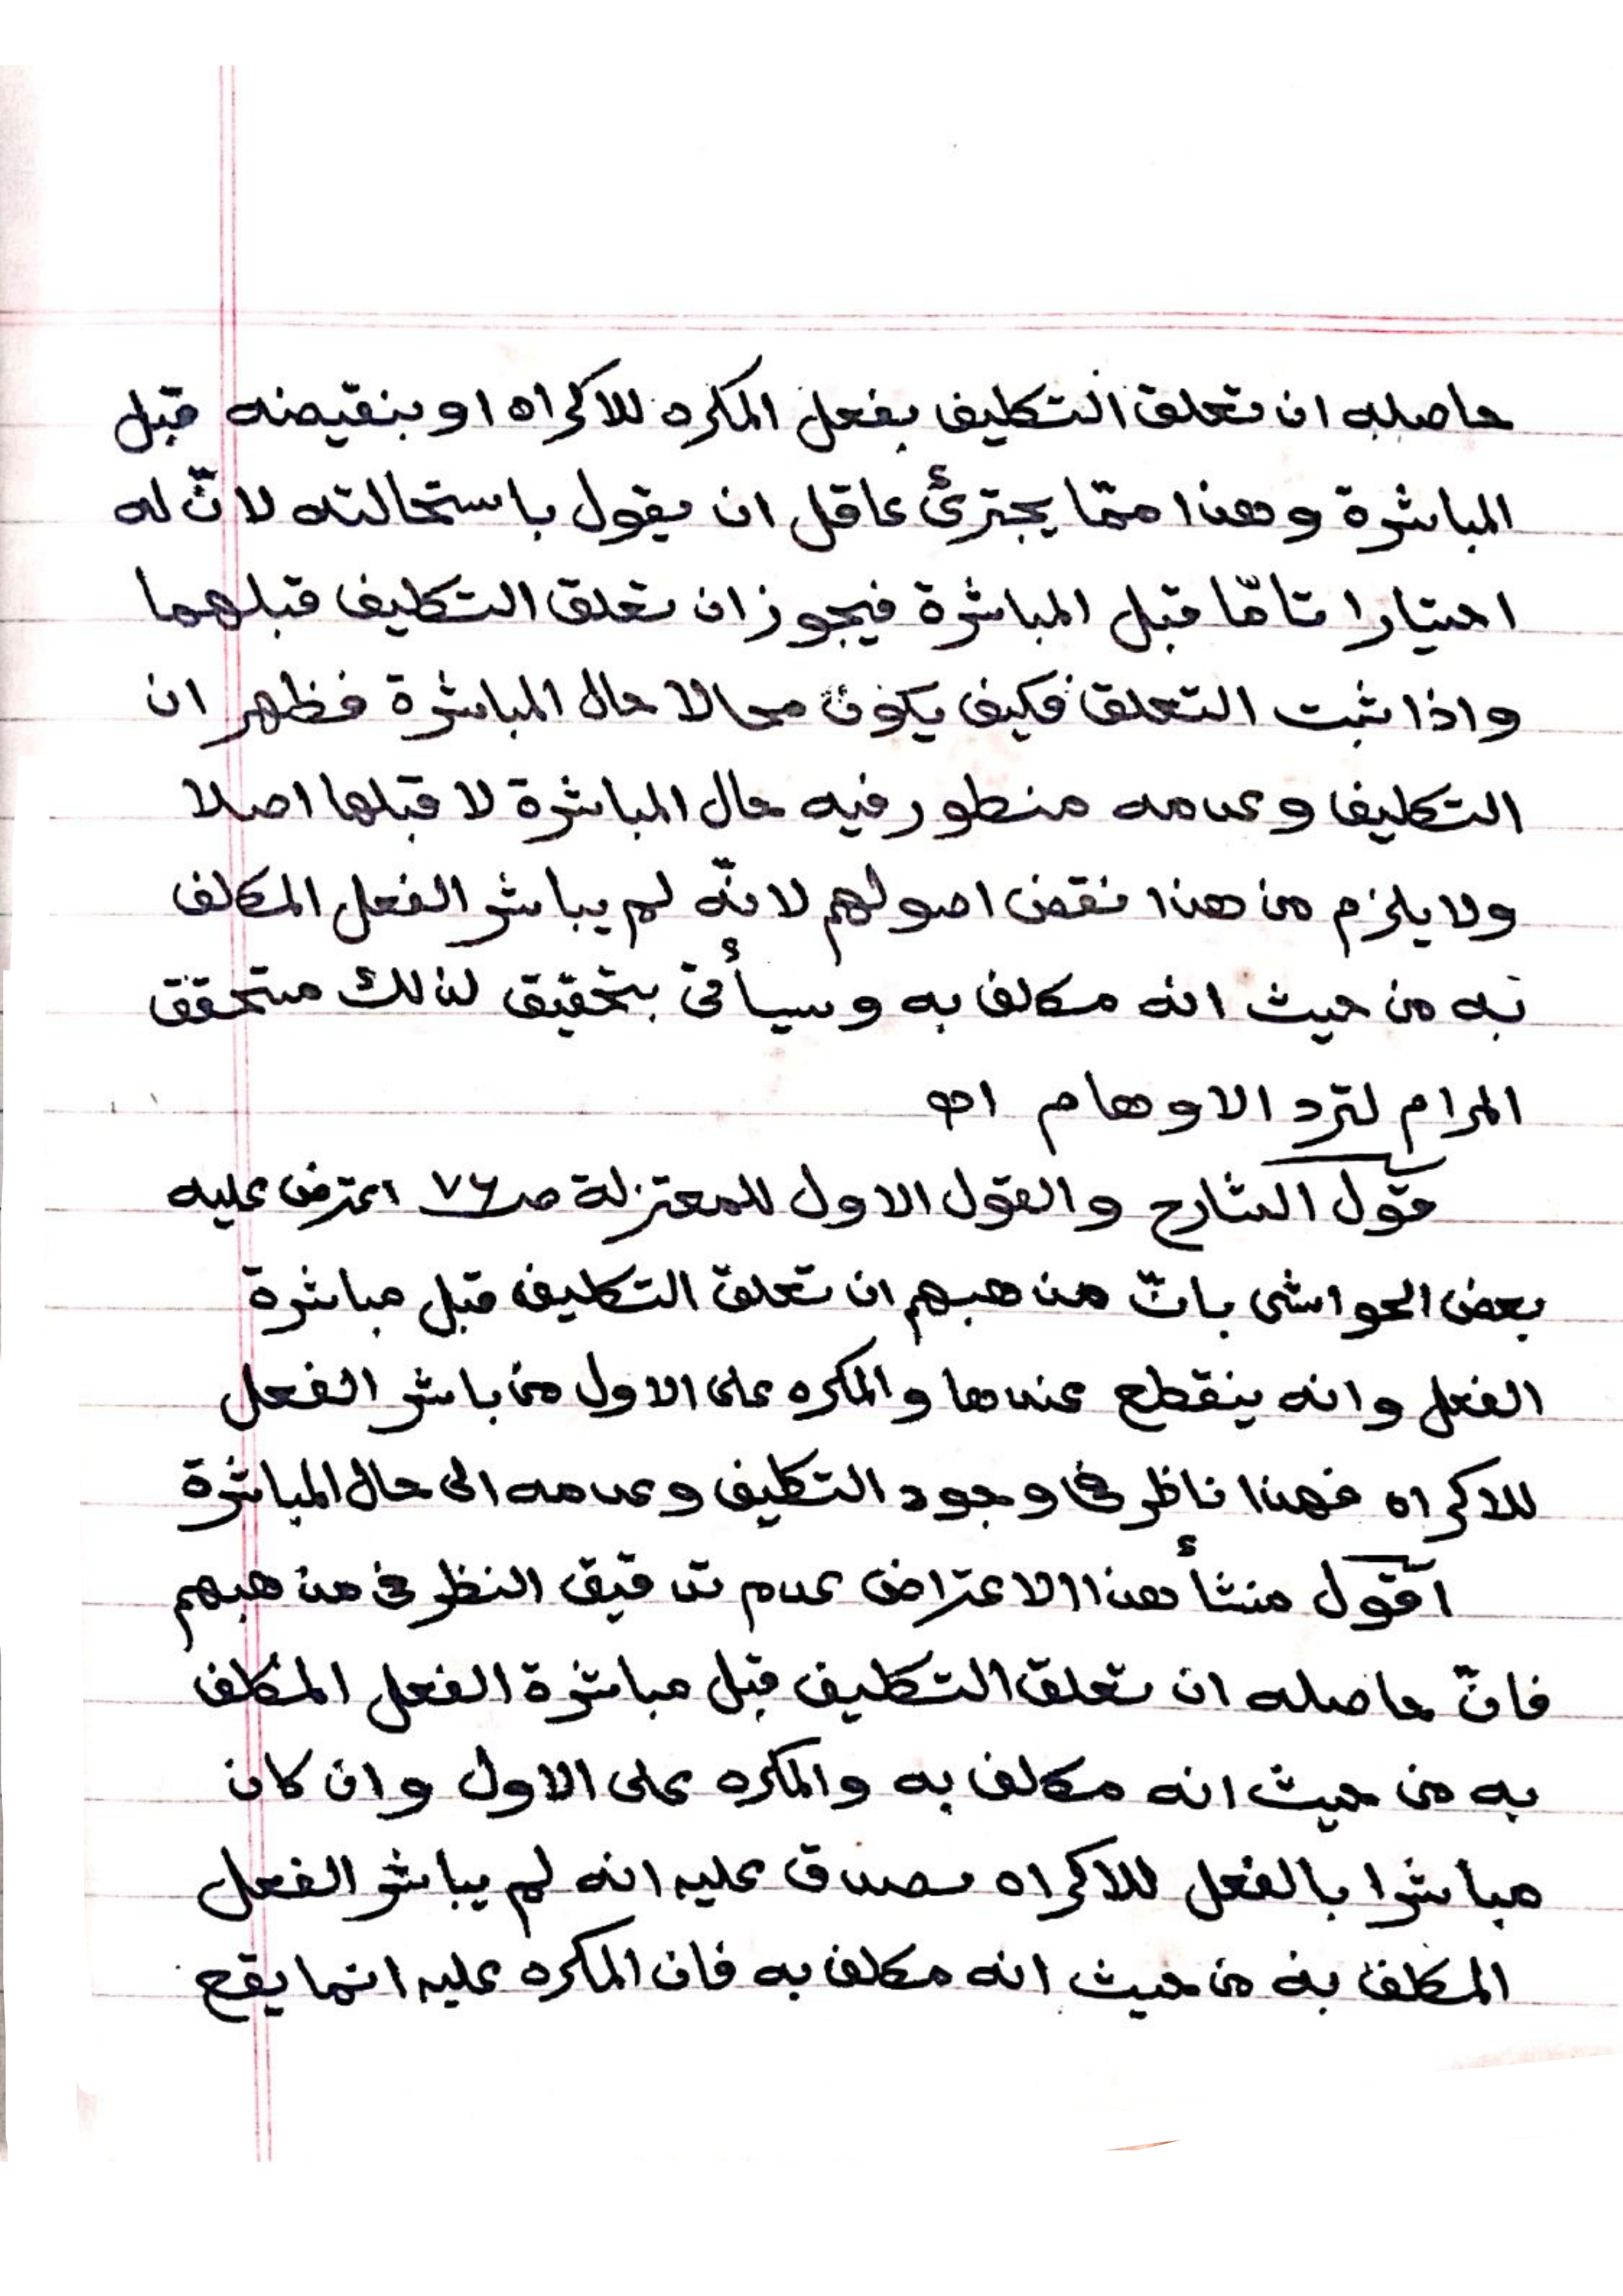 حاصله ان تعلق التكليف بفعل المكره للاكراه او بنقيضه قبل
المباشرة وهذا ممّا يجترئ عاقل ان يقول باستحالته لانّ له
اختيارا تامّا قبل المباشرة فيجوز ان تعلق التكليف قبلهما
واذا ثبت التعلق فكيف يكون محالا حال المباشرة فظهر ان
التكليف وعدمه منظور فيه حال المباشرة لا قبلها اصلا
ولا يلزم من هذا نقض اصولهم لانّه لم يباشر الفعل المكلف
به من حيث انه مكلف به وسيأتى بتحقيق لذلك متحقق
المرام لترد الاوهام اه
قول الشارح والقول الاول للمعتزلة صـ٧٦ اعترض عليه
بعض الحواشى بانّ مذهبهم ان تعلق التكليف قبل مباشرة
الفعل وانه ينقطع عندها والمكره على الاول من باشر الفعل
للاكراه فهذا ناظر فى وجود التكليف وعدمه الى حال المباشرة
اقول منشأ هذا الاعتراض عدم تدقيق النظر فى مذهبهم
فانّ حاصله ان تعلق التكليف قبل مباشرة الفعل المكلف
به من حيث انه مكلف به والمكره على الاول وان كان
مباشرا بالفعل للاكراه يصدق عليه انه لم يباشر الفعل
المكلف به من حيث انه مكلف به فان المكره عليه انما يقع